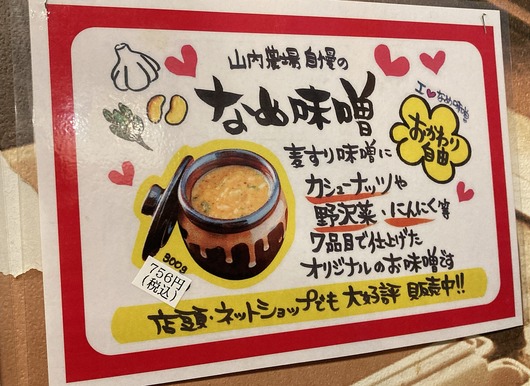 山内農場自慢の
なめ味噌
I♥なめ味噌
おかわり
自由
麦すり味噌に
カシューナッツや
野沢菜・にんにく等
7品目で仕上げた
オリジナルのお味噌です
300g
756円
(税込)
店頭・ネットショップでも大好評販売中!!